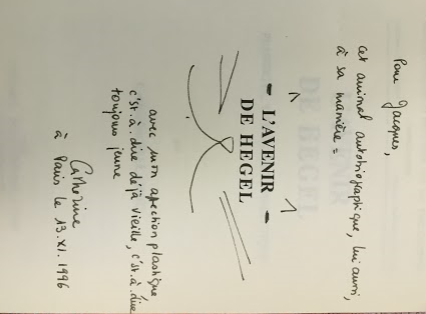 Pour Jacques,
cet animal autobiographique, lui aussi,
à sa manière :
- L'AVENIR -
DE HEGEL
avec mon affection plastique
c'est.à.dire déjà vieille, c'est.à.dire
toujours jeune
Catherine
à Paris le 13.XI.1996